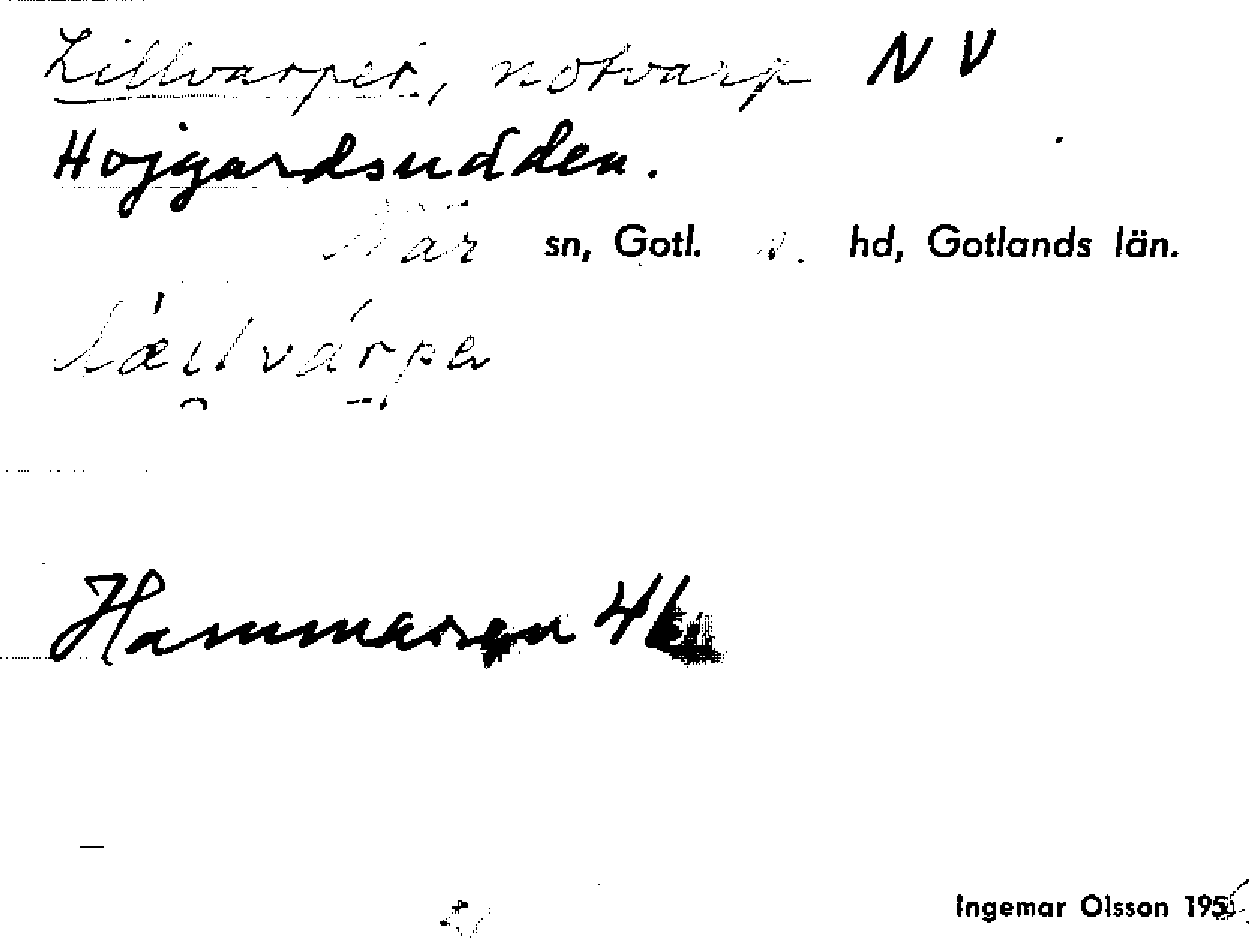 Lillvarpet, notvarp NV
Hojgardsudden.
När sn, Gotl. s. hd, Gotlands län.
Hammaren
Ingemar Olsson 195